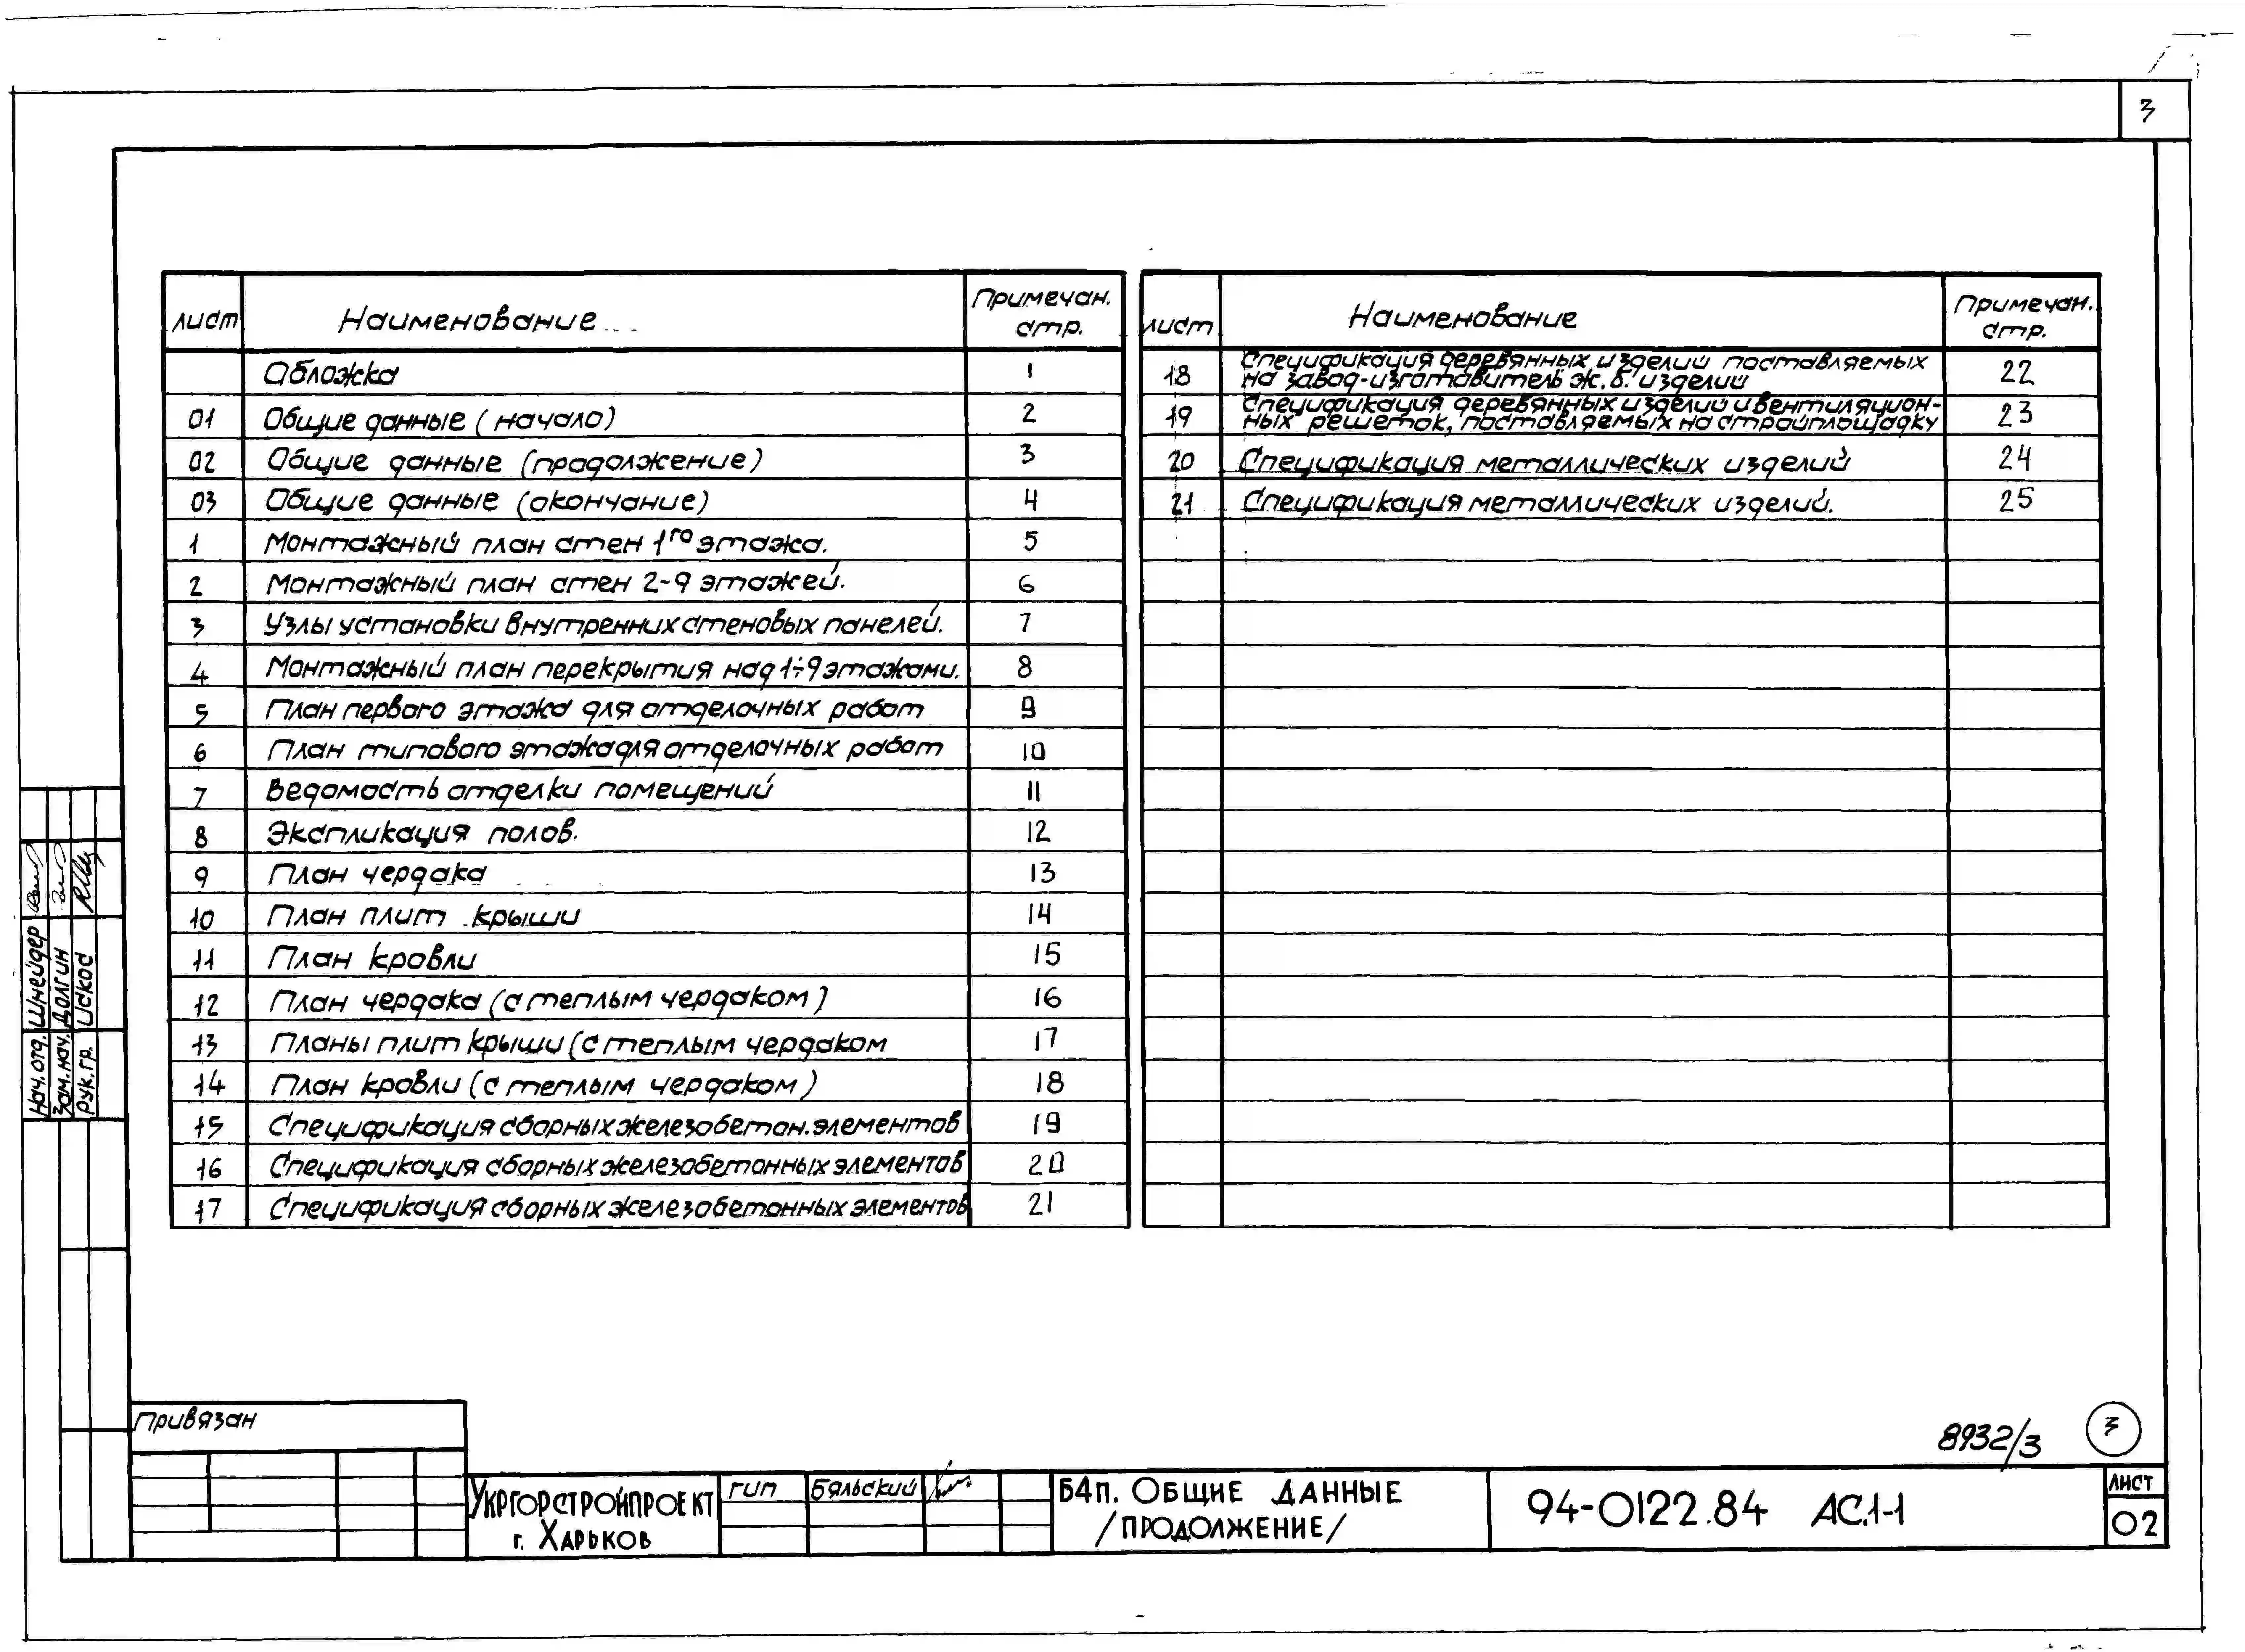 3
лист Наименование Примечан. стр.
Обложка 1
01 Общие данные (начало) 2
02 Общие данные (продолжение) 3
03 Общие данные (окончание) 4
1 Монтажный план стен 1го этажа. 5
2 Монтажный план стен 2-9 этажей. 6
3 Узлы установки внутренних стеновых панелей. 7
4 Монтажный план перекрытия над 1÷9 этажами. 8
5 План первого этажа для отделочных работ 9
6 План типового этажа для отделочных работ 10
7 Ведомость отделки помещений 11
8 Экспликация полов. 12
9 План чердака 13
10 План плит крыши 14
11 План кровли 15
12 План чердака (с теплым чердаком) 16
13 Планы плит крыши (с теплым чердаком 17
14 План кровли (с теплым чердаком) 18
15 Спецификация сборных железобетон. элементов 19
16 Спецификация сборных железобетонных элементов 20
17 Спецификация сборных железобетонных элементов 21
лист Наименование Примечан. стр.
18 Спецификация деревянных изделий поставляемых
на завод-изготовитель ж.б. изделий 22
19 Спецификация деревянных изделий и вентиляцион-
ных решеток, поставляемых на стройплощадку 23
20 Спецификация металлических изделий 24
21 Спецификация металлических изделий. 25
Нач. отд. Шнейдер
Зам. нач. Долгин
Рук. гр. Искоd
Привязан
8932/3 3
Укргорстройпроект
г. Харьков
ГИП Бяльский
Б4п. Общие данные
/продолжение/
94-0122.84 АС.1-1
лист
02